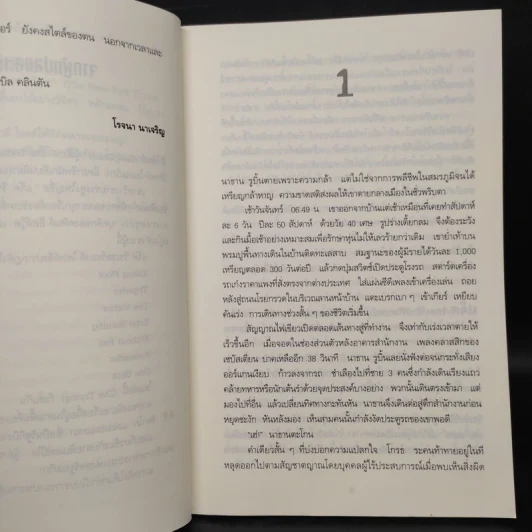 อร์ ยังคงสไตล์ของตน นอกจากเวลาและ
บิล คลินตัน
โรจนา นาเจริญ
1
นาธาน รูบิ้นตายเพราะความกล้า แต่ไม่ใช่จากการพลีชีพในสมรภูมิจนได้
เหรียญกล้าหาญ ความขาดสติส่งผลให้เขาตายกลางเมืองในชั่วพริบตา
เช้าวันจันทร์ 06.49 น. เขาออกจากบ้านแต่เช้าเหมือนที่เคยทำสัปดาห์
ละ 6 วัน ปีละ 50 สัปดาห์ ด้วยวัย 40 เศษ รูปร่างเตี้ยกลม จึงต้องระวัง
และกินมื้อเช้าอย่างเหมาะสมเพื่อรักษาหุ่นไม่ให้เลวร้ายกว่าเดิม เขาย่ำเท้าบน
พรมปูพื้นทางเดินในบ้านติดทะเลสาบ สมฐานะของผู้มีรายได้วันละ 1,000
เหรียญตลอด 300 วันต่อปี แล้วกดปุ่มสวิตช์เปิดประตูโรงรถ สตาร์ตเครื่อง
รถเก๋งราคาแพงที่สั่งตรงจากต่างประเทศ ใส่แผ่นซีดีเพลงเข้าเครื่องเล่น ถอย
หลังสู่ถนนโรยกรวดในบริเวณลานหน้าบ้าน แตะเบรกเบา ๆ เข้าเกียร์ เหยียบ
คันเร่ง การเดินทางช่วงสั้น ๆ ของชีวิตเริ่มขึ้น
สัญญาณไฟเขียวเปิดตลอดเส้นทางสู่ที่ทำงาน จึงเท่ากับเร่งเวลาตายให้
เร็วขึ้นอีก เมื่อจอดในช่องส่วนตัวหลังอาคารสำนักงาน เพลงคลาสสิกของ
เซบัสเตียน บาคเหลืออีก 38 วินาที นาธาน รูบิ้นเลยนั่งฟังต่อจนกระทั่งเสียง
ออร์แกนเงียบ ก้าวลงจากรถ ชำเลืองไปที่ชาย 3 คนซึ่งกำลังเดินเรียงแถว
คล้ายทหารหรือนักเต้นรำด้วยจุดประสงค์บางอย่าง พวกนั้นเดินตรงเข้ามา แต่
มองไปที่อื่น แล้วเปลี่ยนทิศทางกะทันหัน นาธานจึงเดินต่อสู่ตึกสำนักงานก่อน
หยุดชะงัก หันหลังมอง เห็นสามคนนั้นกำลังงัดประตูรถของเขาพอดี
"เฮ่" นาธานตะโกน
คำเดียวสั้น ๆ ที่บ่งบอกความแปลกใจ โกรธ ระคนท้าทายอยู่ในที
หลุดออกไปตามสัญชาตญาณโดยบุคคลผู้ไร้ประสบการณ์เมื่อพบเห็นสิ่งผิด